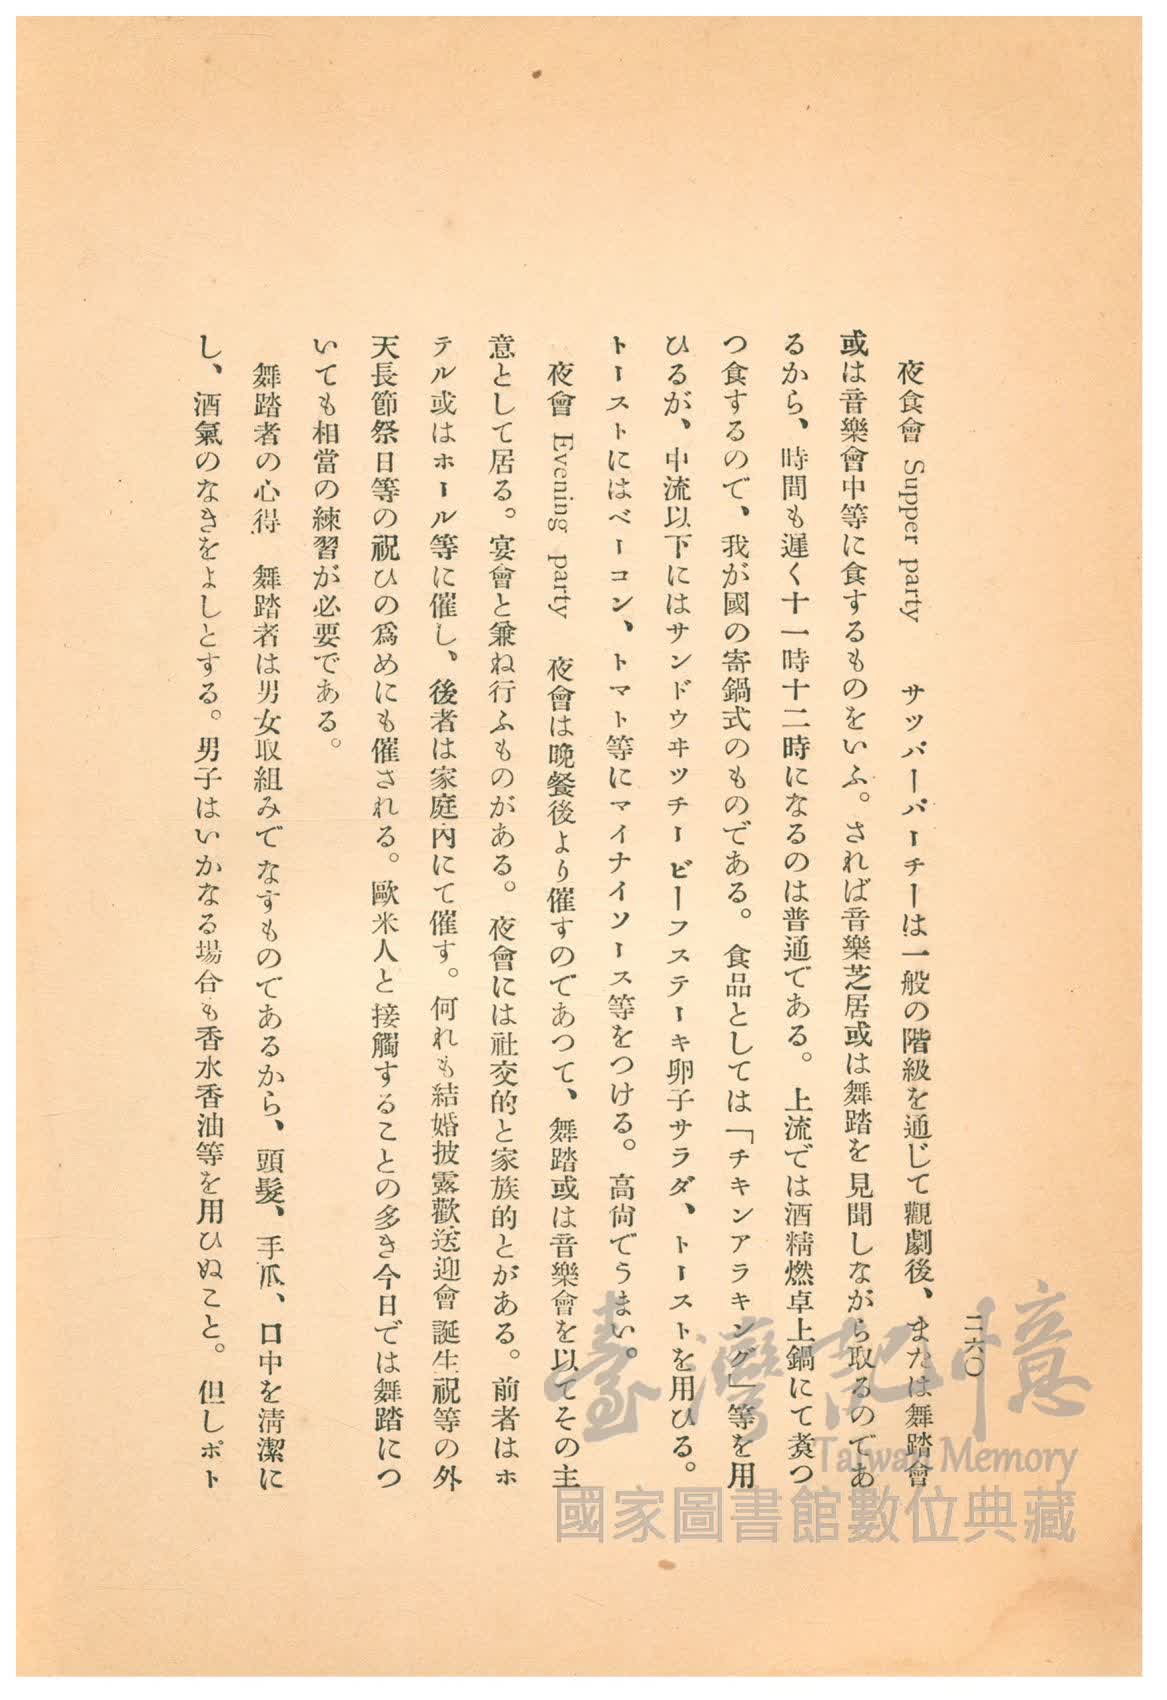 二六〇
夜食會 Supper party　サッパーパーチーは一般の階級を通じて觀劇後、または舞踏會
或は音樂會中等に食するものをいふ。されば音樂芝居或は舞踏を見聞しながら取るのであ
るから、時間も遲く十一時十二時になるのは普通である。上流では酒精燃卓上鍋にて煑つ
つ食するので、我が國の寄鍋式のものである。食品としては「チキンアラキング」等を用
ひるが、中流以下にはサンドウヰツチービーフステーキ卵子サラダ、トーストを用ひる。
トーストにはベーコン、トマト等にマイナイソース等をつける。高尙でうまい。
夜會 Evening party　夜會は晩餐後より催すのであつて、舞踏或は音樂會を以てその主
意として居る。宴會と兼ね行ふものがある。夜會には社交的と家族的とがある。前者はホ
テル或はホール等に催し、後者は家庭內にて催す。何れも結婚披露歡送迎會誕生祝等の外
天長節祭日等の祝ひの爲めにも催される。歐米人と接觸することの多き今日では舞踏につ
いても相當の練習が必要である。
舞踏者の心得　舞踏者は男女取組みでなすものであるから、頭髮、手爪、口中を淸潔に
し、酒氣のなきをよしとする。男子はいかなる場合も香水香油等を用ひぬこと。但しポト
臺灣記憶
Taiwan Memory
國家圖書館數位典藏